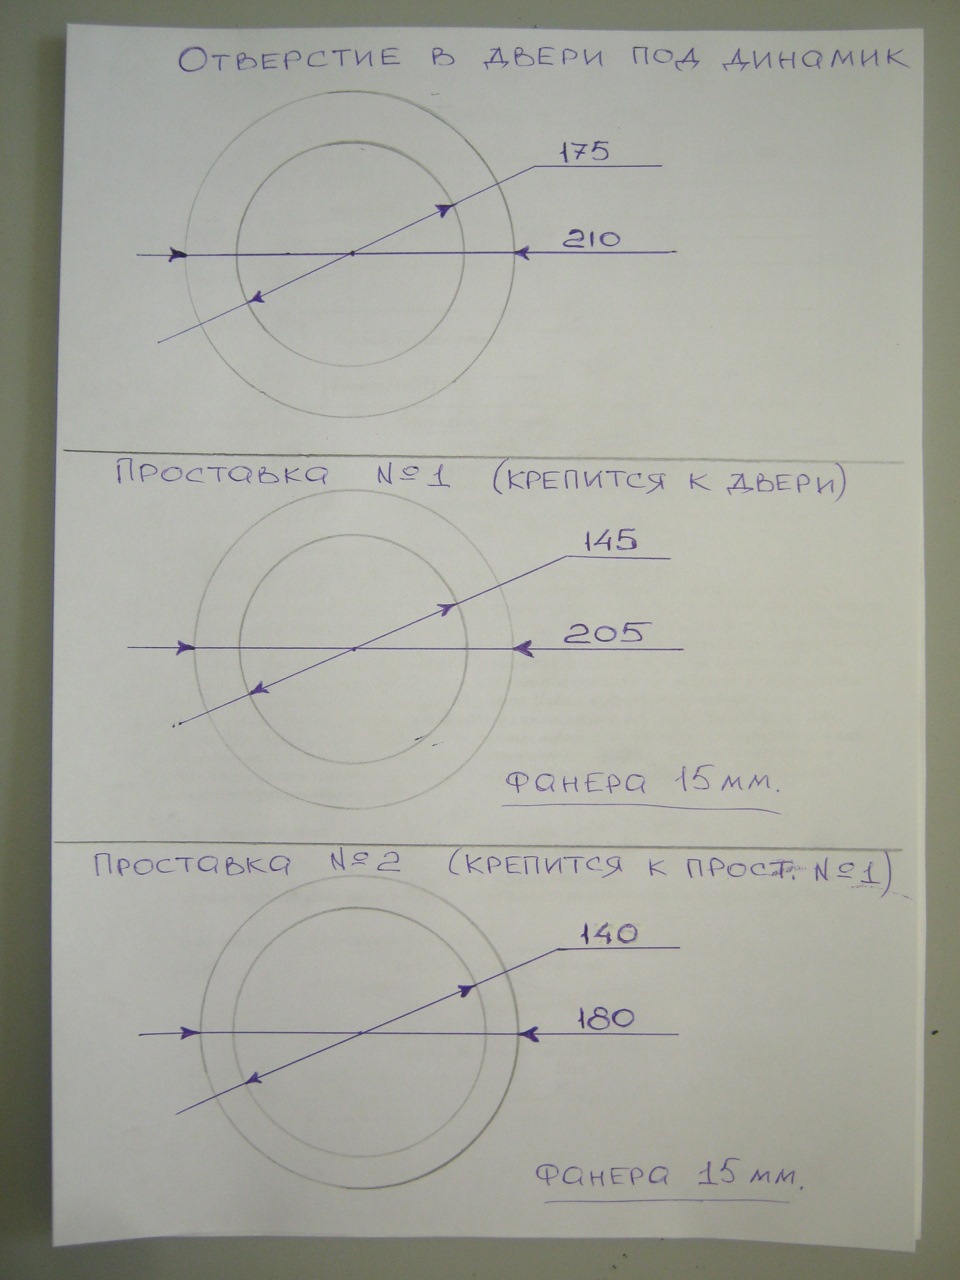 ОТВЕРСТИЕ В ДВЕРИ ПОД ДИНАМИК
175
210
ПРОСТАВКА №1 (КРЕПИТСЯ К ДВЕРИ)
145
205
ФАНЕРА 15 мм.
ПРОСТАВКА №2 (КРЕПИТСЯ К ПРОСТ. №1)
140
180
ФАНЕРА 15 мм.